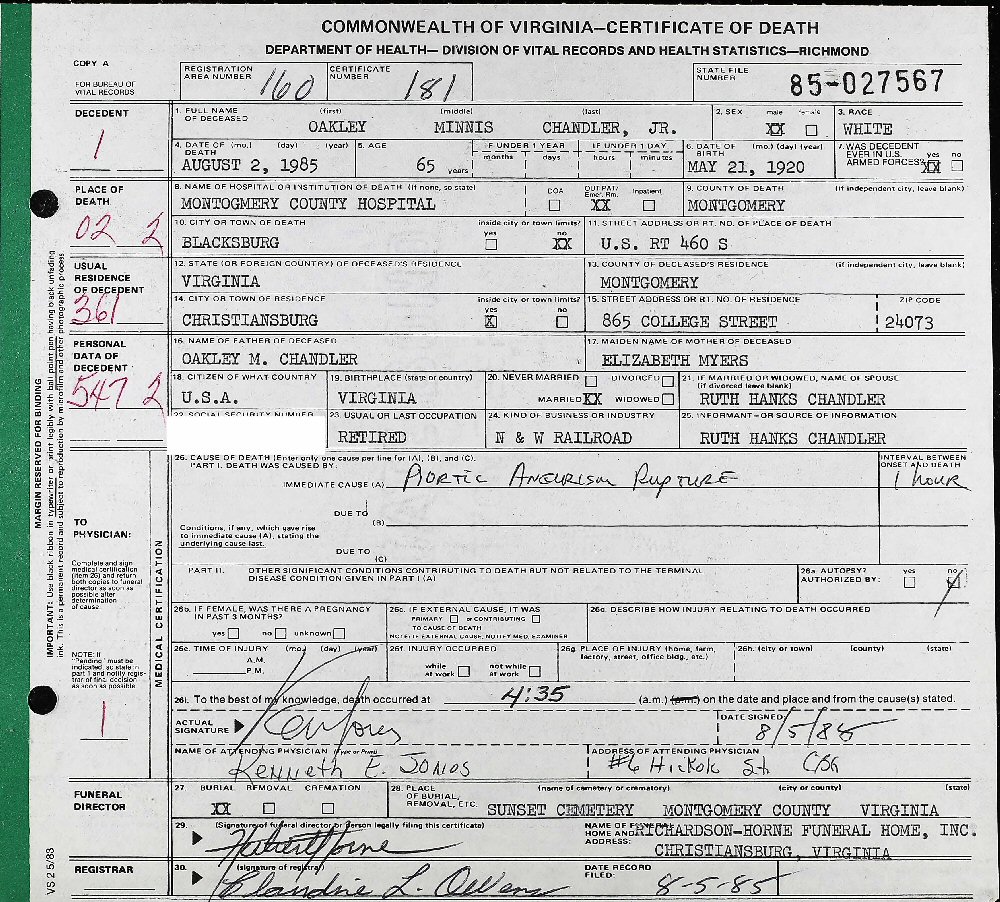 COMMONWEALTH OF VIRGINIA—CERTIFICATE OF DEATH
DEPARTMENT OF HEALTH— DIVISION OF VITAL RECORDS AND HEALTH STATISTICS—RICHMOND
COPY A
FOR BUREAU OF VITAL RECORDS
REGISTRATION AREA NUMBER 160
CERTIFICATE NUMBER 181
STATE FILE NUMBER 85-027567
DECEDENT
1
1. FULL NAME OF DECEASED (first) (middle) (last)
OAKLEY MINNIS CHANDLER, JR.
2. SEX male female
XX
3. RACE
WHITE
4. DATE OF DEATH (mo.) (day) (year)
AUGUST 2, 1985
5. AGE
65 years
IF UNDER 1 YEAR months days
IF UNDER 1 DAY hours minutes
6. DATE OF BIRTH (mo.) (day) (year)
MAY 21, 1920
7. WAS DECEDENT EVER IN U.S. ARMED FORCES? yes no
XX
PLACE OF DEATH
02 2
8. NAME OF HOSPITAL OR INSTITUTION OF DEATH (if none, so state)
MONTOGMERY COUNTY HOSPITAL
DOA OUT PAT/ Emer. Rm. Inpatient
XX
9. COUNTY OF DEATH (if independent city, leave blank)
MONTGOMERY
10. CITY OR TOWN OF DEATH inside city or town limits? yes no
BLACKSBURG XX
11. STREET ADDRESS OR RT. NO. OF PLACE OF DEATH
U.S. RT 460 S
USUAL RESIDENCE OF DECEDENT
361
12. STATE (OR FOREIGN COUNTRY) OF DECEASED'S RESIDENCE
VIRGINIA
13. COUNTY OF DECEASED'S RESIDENCE (if independent city, leave blank)
MONTGOMERY
14. CITY OR TOWN OF RESIDENCE inside city or town limits? yes no
CHRISTIANSBURG X
15. STREET ADDRESS OR RT. NO. OF RESIDENCE ZIP CODE
865 COLLEGE STREET 24073
PERSONAL DATA OF DECEDENT
547 2
16. NAME OF FATHER OF DECEASED
OAKLEY M. CHANDLER
17. MAIDEN NAME OF MOTHER OF DECEASED
ELIZABETH MYERS
18. CITIZEN OF WHAT COUNTRY
U.S.A.
19. BIRTHPLACE (state or country)
VIRGINIA
20. NEVER MARRIED DIVORCED
MARRIED XX WIDOWED
21. IF MARRIED OR WIDOWED, NAME OF SPOUSE (if divorced leave blank)
RUTH HANKS CHANDLER
22. SOCIAL SECURITY NUMBER
23. USUAL OR LAST OCCUPATION
RETIRED
24. KIND OF BUSINESS OR INDUSTRY
N & W RAILROAD
25. INFORMANT—OR SOURCE OF INFORMATION
RUTH HANKS CHANDLER
MARGIN RESERVED FOR BINDING
IMPORTANT: Use black ribbon in typewriter or print legibly with ball point pen having black unfading ink. This is a permanent record and subject to reproduction by microfilm and other photographic process.
TO PHYSICIAN:
Complete and sign medical certification (item 26) and return both copies to funeral director as soon as possible after determination of cause
NOTE: If "Pending" must be indicated, so state in part I and notify registrar of final decision as soon as possible
1
MEDICAL CERTIFICATION
26. CAUSE OF DEATH (Enter only one cause per line for (A), (B), and (C).
PART I. DEATH WAS CAUSED BY:
INTERVAL BETWEEN ONSET AND DEATH
IMMEDIATE CAUSE (A) AORTIC ANEURISM RUPTURE 1 hour
DUE TO (B)
Conditions, if any, which gave rise to immediate cause (A), stating the underlying cause last.
DUE TO (C)
PART II. OTHER SIGNIFICANT CONDITIONS CONTRIBUTING TO DEATH BUT NOT RELATED TO THE TERMINAL DISEASE CONDITION GIVEN IN PART I (A)
26a. AUTOPSY? AUTHORIZED BY: yes no
26b. IF FEMALE, WAS THERE A PREGNANCY IN PAST 3 MONTHS?
yes no unknown
26c. IF EXTERNAL CAUSE, IT WAS
PRIMARY or CONTRIBUTING
TO CAUSE OF DEATH
NOTE: IF EXTERNAL CAUSE, NOTIFY MED. EXAMINER
26d. DESCRIBE HOW INJURY RELATING TO DEATH OCCURRED
26e. TIME OF INJURY (mo.) (day) (year)
A.M.
P.M.
26f INJURY OCCURRED
while at work not while at work
26g. PLACE OF INJURY (home, farm, factory, street, office bldg., etc.)
26h. (city or town) (county) (state)
26i. To the best of my knowledge, death occurred at 4:35 (a.m.) (p.m.) on the date and place and from the cause(s) stated.
ACTUAL SIGNATURE Ken Jones
DATE SIGNED 8/5/85
NAME OF ATTENDING PHYSICIAN (Type or Print)
Kenneth E. Jones
ADDRESS OF ATTENDING PHYSICIAN
#6 Hickok St CBG
FUNERAL DIRECTOR
27 BURIAL REMOVAL CREMATION
XX
28. PLACE OF BURIAL, REMOVAL, ETC. (name of cemetery or crematory) (city or county) (state)
SUNSET CEMETERY MONTGOMERY COUNTY VIRGINIA
29. (Signature of funeral director or person legally filing this certificate)
NAME OF FUNERAL HOME AND ADDRESS:
RICHARDSON-HORNE FUNERAL HOME, INC.
CHRISTIANSBURG, VIRGINIA
REGISTRAR
30. (signature of registrar)
Claudine L. Owens
DATE RECORD FILED: 8-5-85
VS 2 5/83